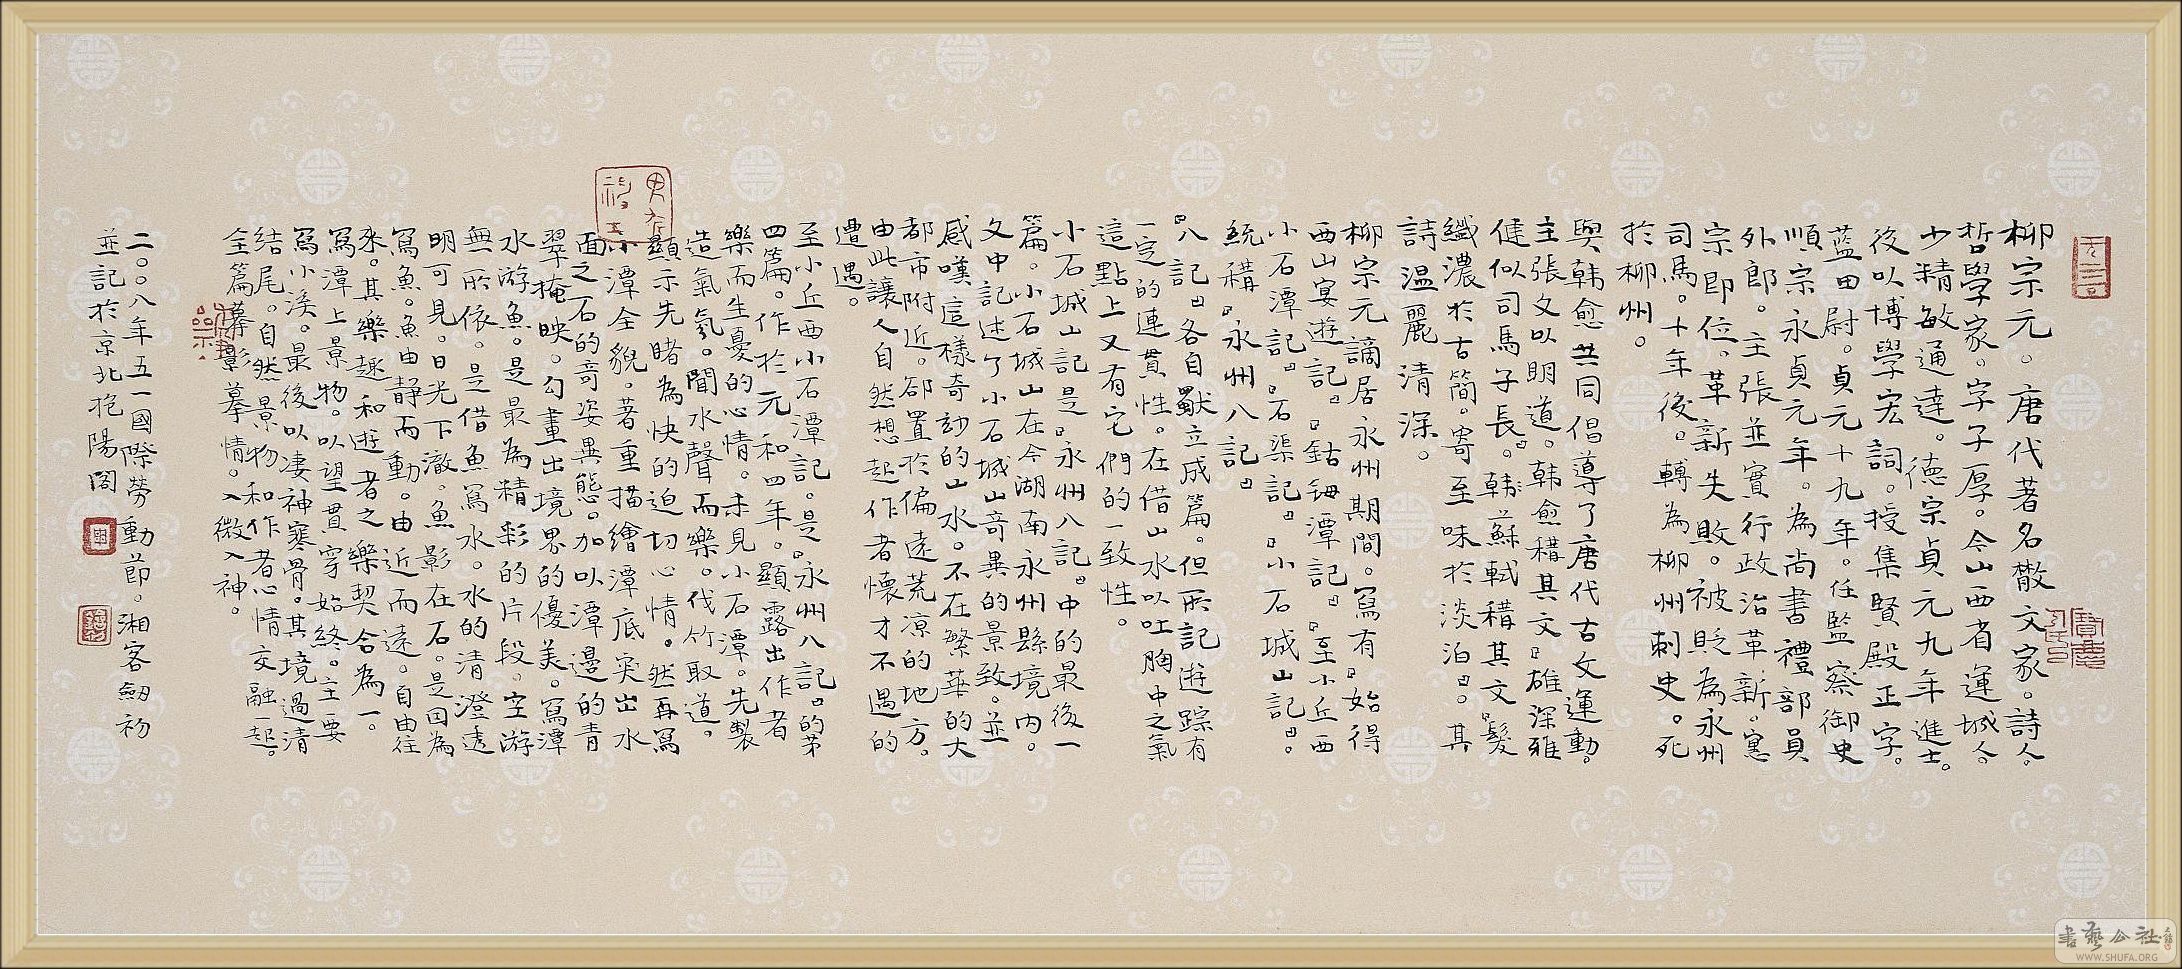 柳宗元。唐代著名散文家。詩人。
哲學家。字子厚。今山西省運城人。
少精敏通達。德宗貞元九年進士。
後以博學宏詞。授集賢殿正字。
藍田尉。貞元十九年。任監察御史
順宗永貞元年。為尚書禮部員
外郎。主張並實行政治革新。憲
宗即位。革新失敗。被貶為永州
司馬。十年後。轉為柳州刺史。死
於柳州。
與韓愈共同倡導了唐代古文運動。
主張文以明道。韓愈稱其文『雄深雅
健似司馬子長』。韓蘇軾稱其文『髮
纖濃於古簡。寄至味於淡泊』。其
詩溫麗清深。
柳宗元謫居永州期間。寫有『始得
西山宴遊記』。『鈷鉧潭記』。『至小丘西
小石潭記』。『石渠記』『小石城山記』。
統稱『永州八記』
『八記』各自獨立成篇。但所記遊踪有
一定的連貫性。在借山水以吐胸中之氣
這點上又有它們的一致性。
小石城山記是『永州八記』中的最後一
篇。小石城山在今湖南永州縣境內。
文中記述了小石城山奇異的景致。並
感嘆這樣奇妙的山水。不在繁華的大
都市附近。卻置於偏遠荒涼的地方。
由此讓人自然想起作者懷才不遇的
遭遇。
至小丘西小石潭記。是『永州八記』的第
四篇。作於元和四年。顯露出作者
樂而生憂的心情。未見小石潭。先製
造氣氛。聞水聲而樂。伐竹取道。
顯示先睹為快的迫切心情。然再寫
小潭全貌。著重描繪潭底突出水
面之石的奇姿異態。加以潭邊的青
翠掩映。勾畫出境界的優美。寫潭
水游魚。是最為精彩的片段。空游
無所依。是借魚寫水。水的清澄透
明可見。日光下澈。魚影在石。是因為
寫魚。魚由靜而動。由近而遠。自由往
來。其樂趣和遊者之樂契合為一。
寫潭上景物。以望貫穿始終。主要
寫小溪。最後以凄神寒骨。其境過清
結尾。自然景物和作者心情交融一起。
全篇摹影摹情。入微入神。
二〇〇八年五一國際勞動節。湘客劍初
並記於京北抱陽閣
書藝公社
WWW.SHUFA.ORG